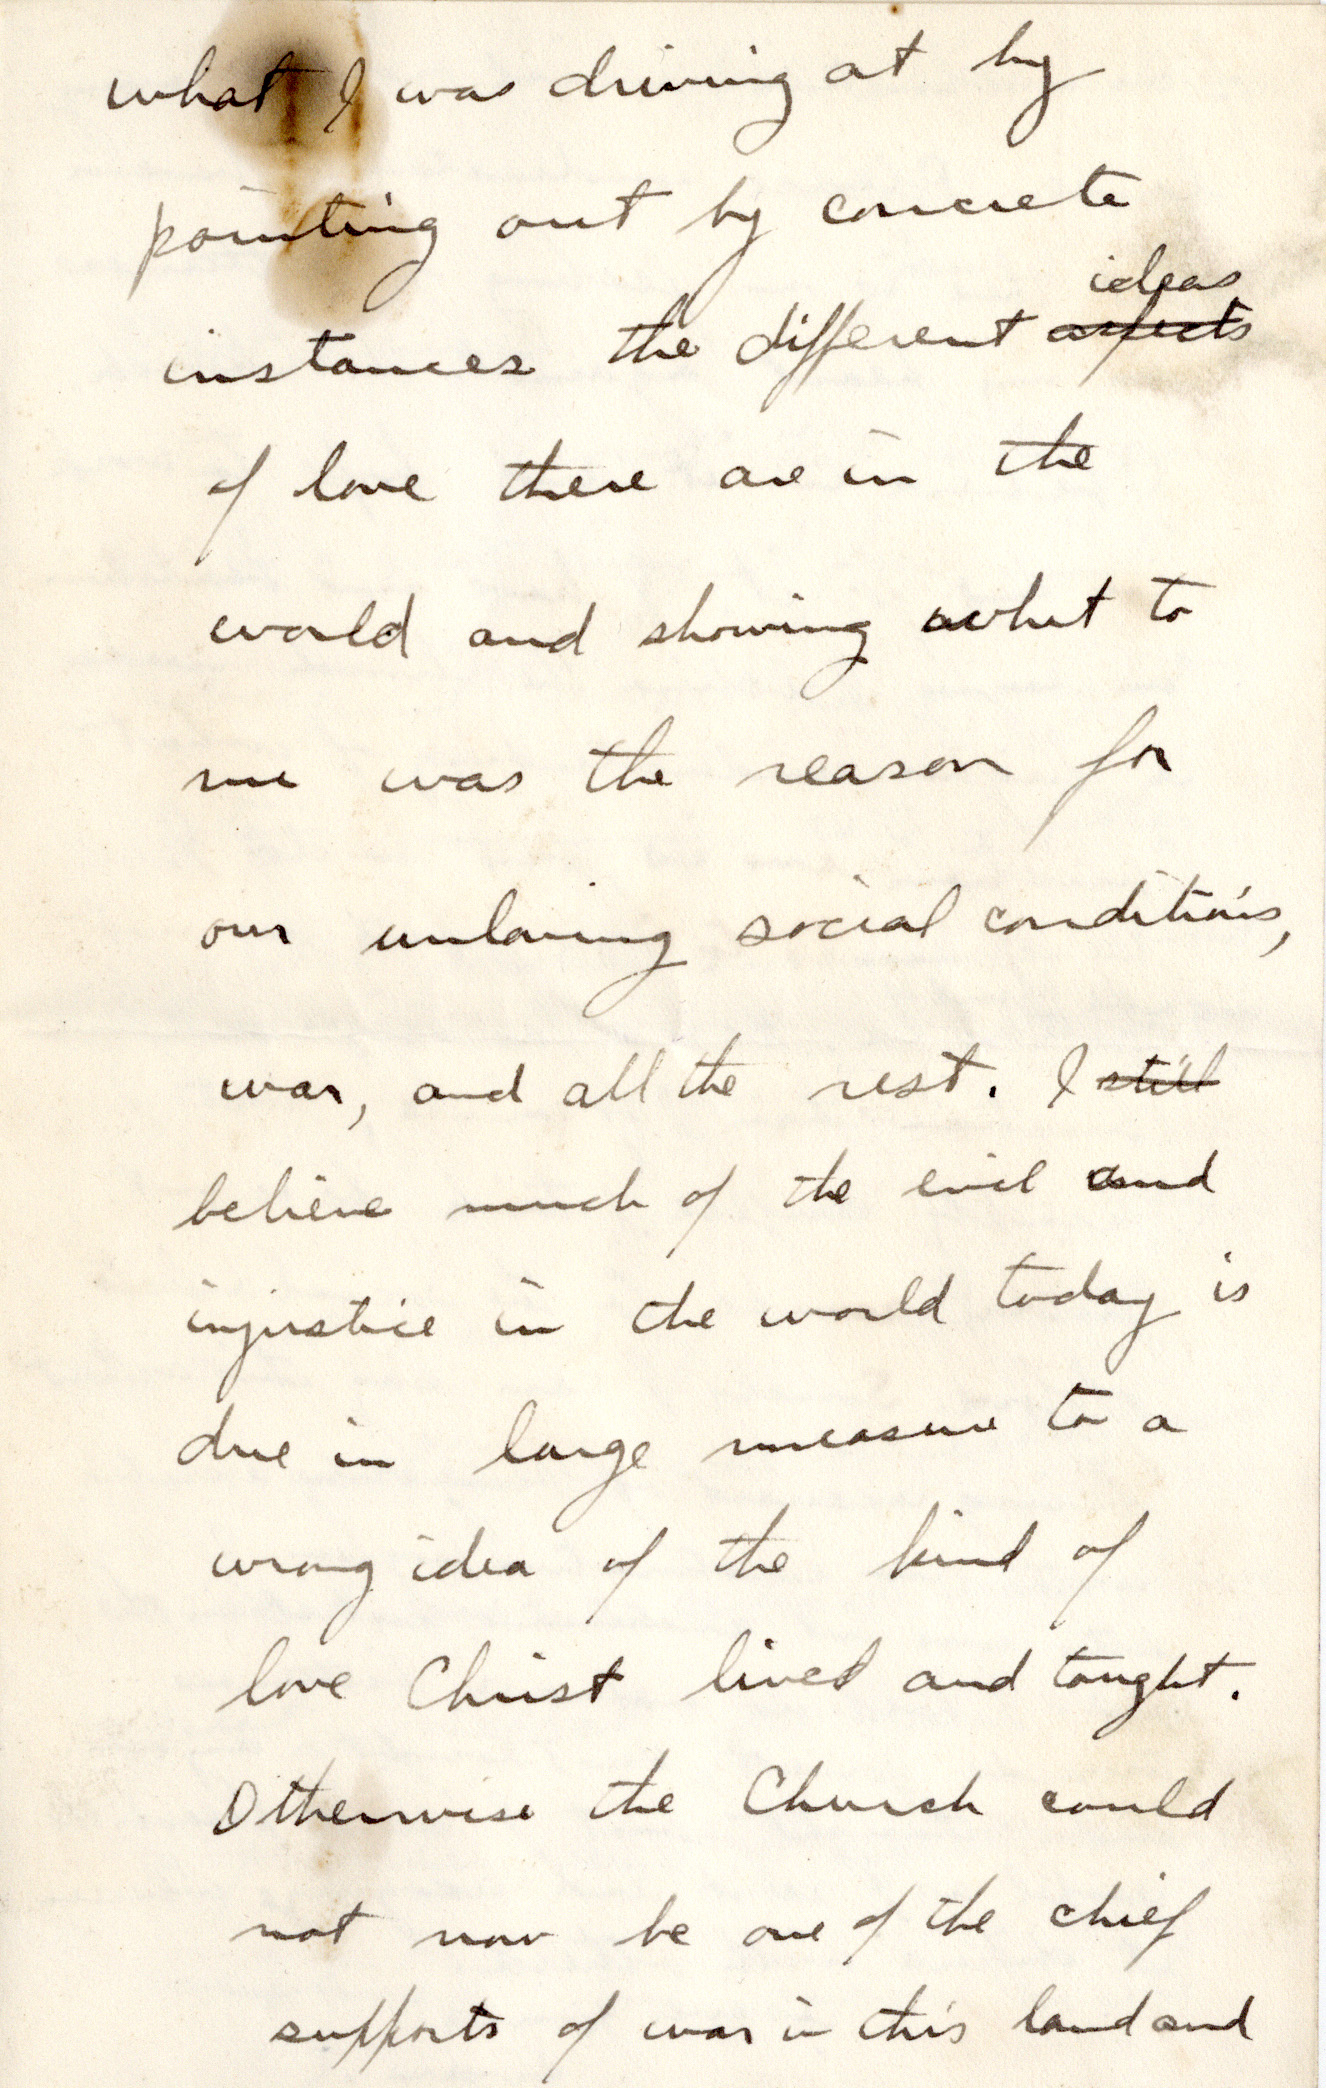 what I was driving at by
pointing out by concrete
ideas
instances the different aspects
of love there are in the
world and showing what to
me was the reason for
our unloving social conditions,
war, and all the rest. I still
believe much of the evil and
injustice in the world today is
due in large measure to a
wrong idea of the kind of
love Christ lived and taught.
Otherwise the Church could
not now be one of the chief
supports of war in this land and